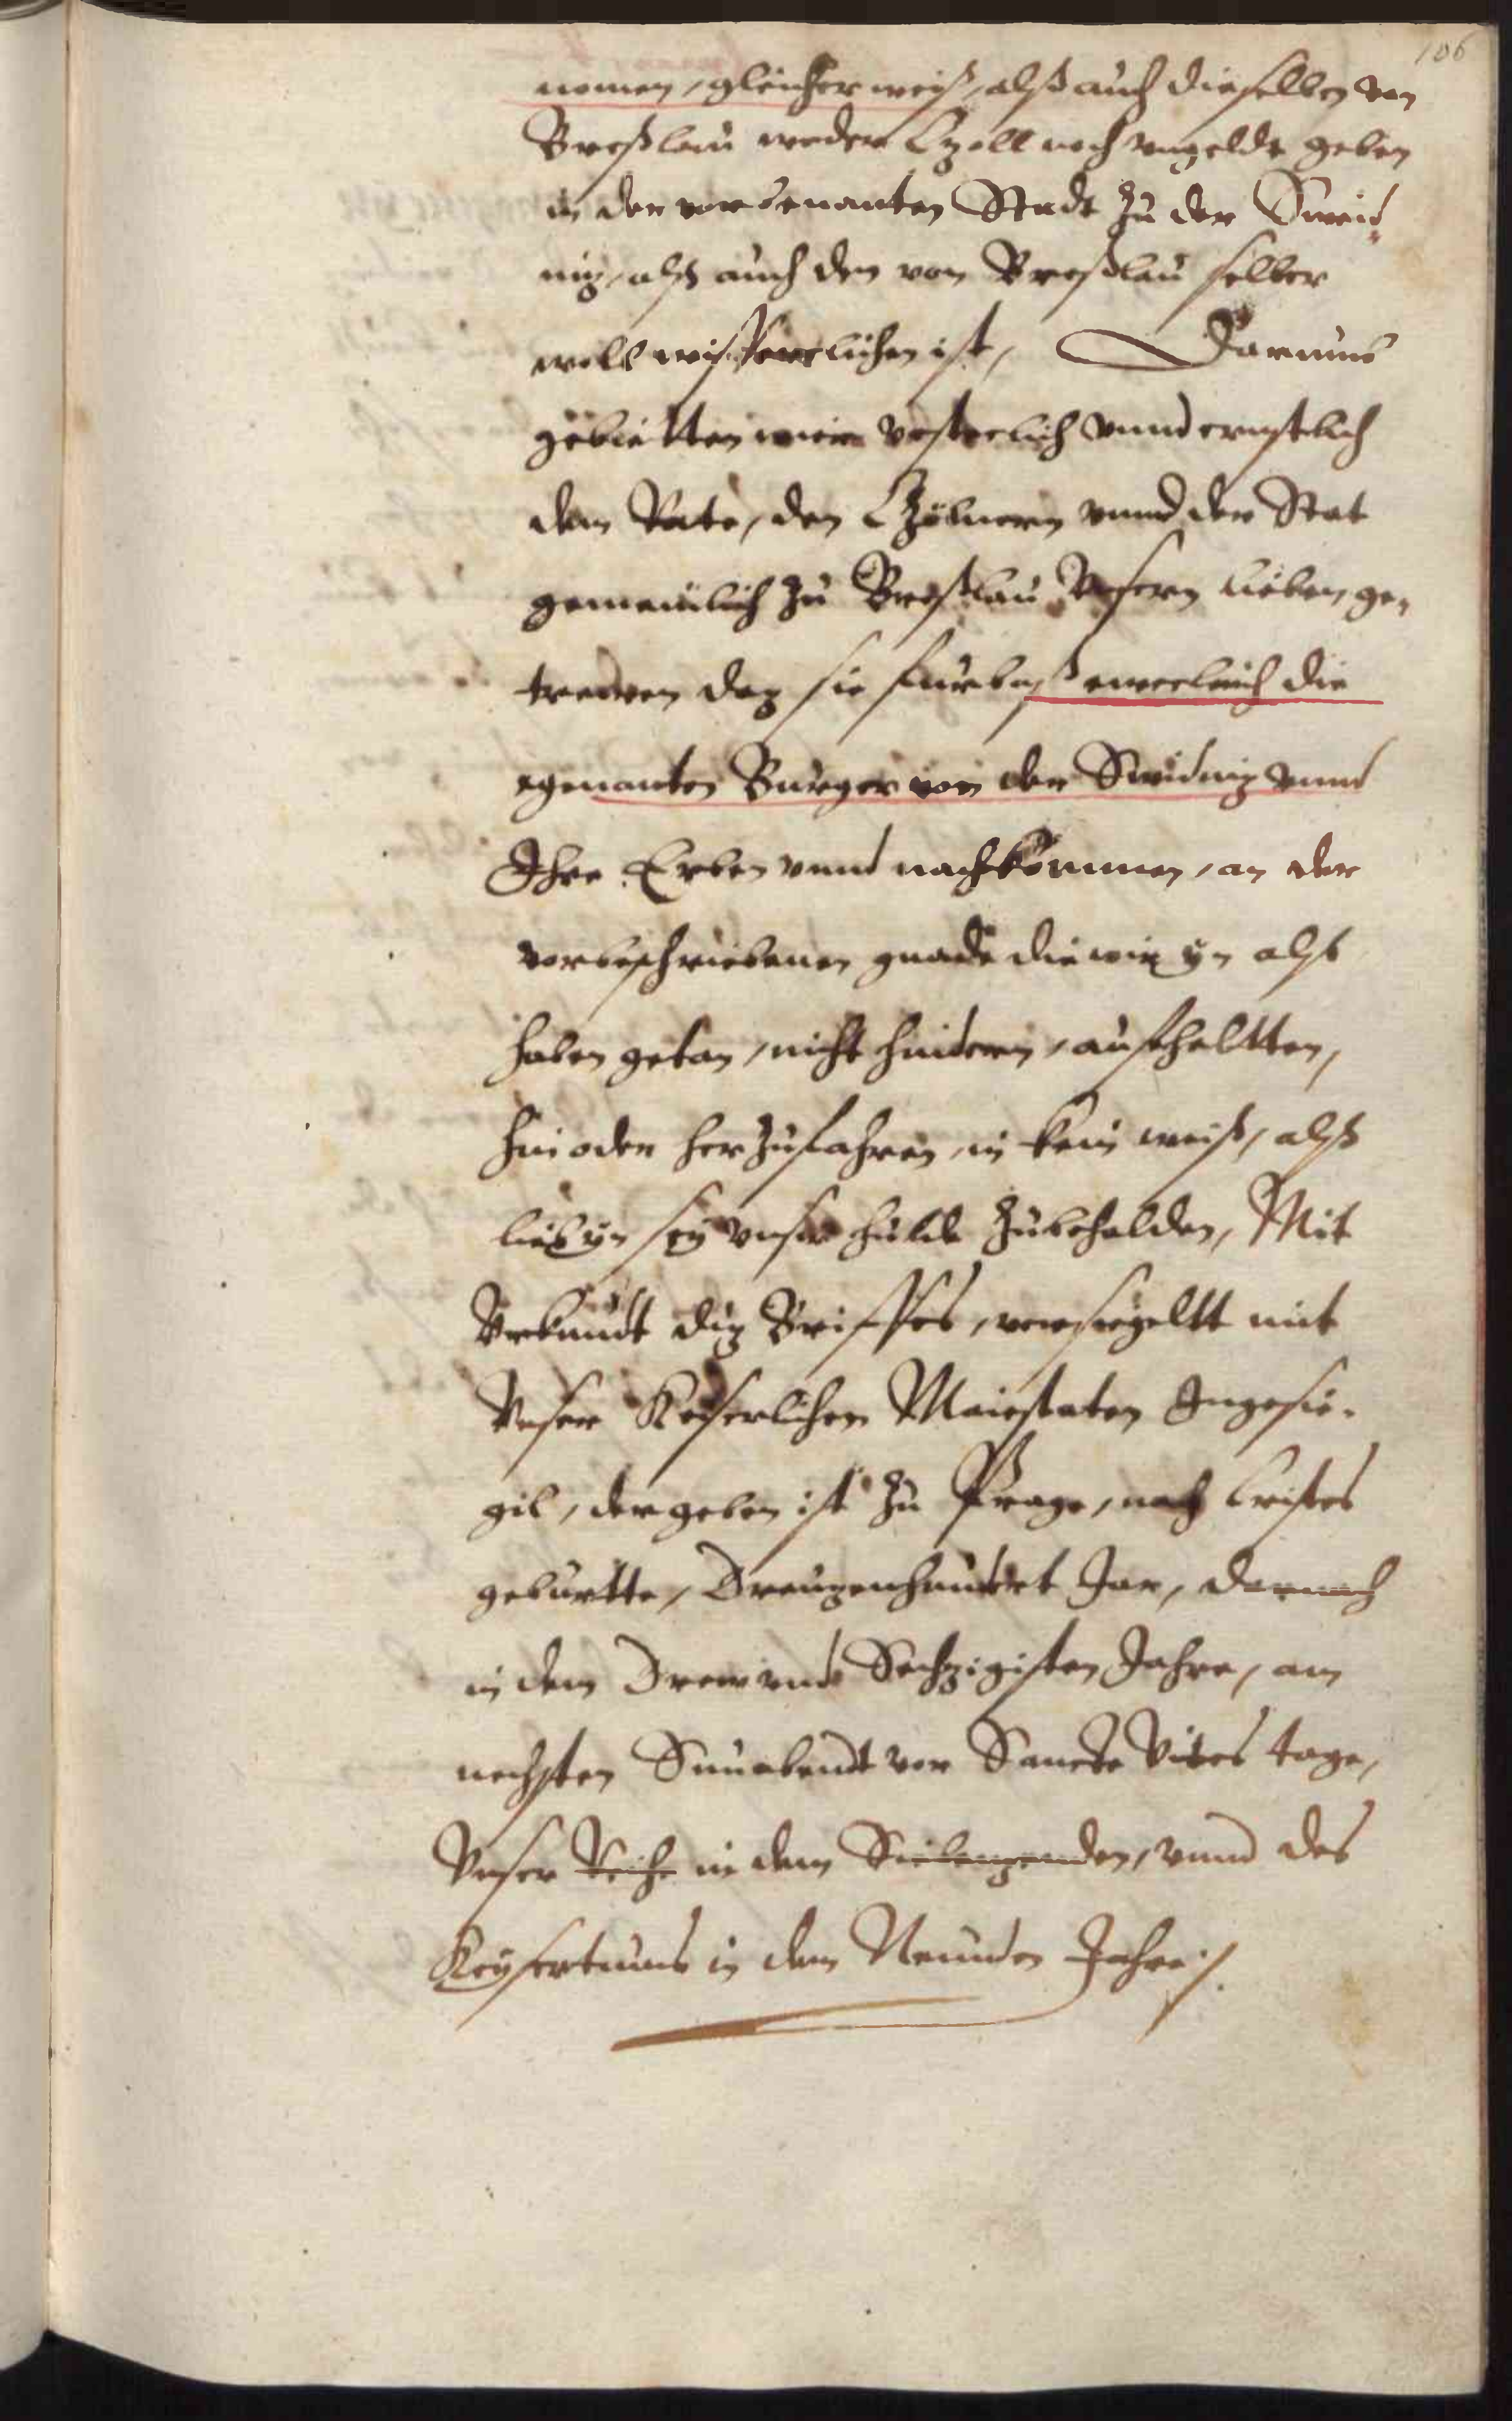 106
nemen, gleicher weiß, alß auch dieselben von
Breßlau weder Czoll noch ungelde geben
in der vorbenanten Stadt zu der Sweid-
niz, alß auch den von Breßlau selber
woll wissentlichen ist, Darumb
gebietten wier vesteclich unnd ernstlich
dem Rate, den Czölnern unnd der Stat
gemeinlich zu Breßlau Unsern lieben ge-
trewen daz sie furbaß eweclich die
egenanten Burger von der Swidniz unnd
Ihre Erben unnd nachkommen, an der
vorbeschriebenen gnade die wir yn alß
haben getan, nicht hindern, aufhaltten,
hin oder her zufahren, in kein weiß, alß
lieb yn sey unser hulde zubehalden, Mit
Urkundt diz Brieffes, versiegeltt mit
Unser Keiserlichen Maiestaten Ingesie-
gil, der geben ist zu Prage, nach Cristes
geburtte, Dreuzenhundert Jar, darnach
in dem Drew und Sechzigisten Jahre, am
nechsten Sunabendt vor Sancte Vites tage,
Unser Reiche in dem Siebenzenden, unnd des
Keysertums in dem Neunden Jahre.